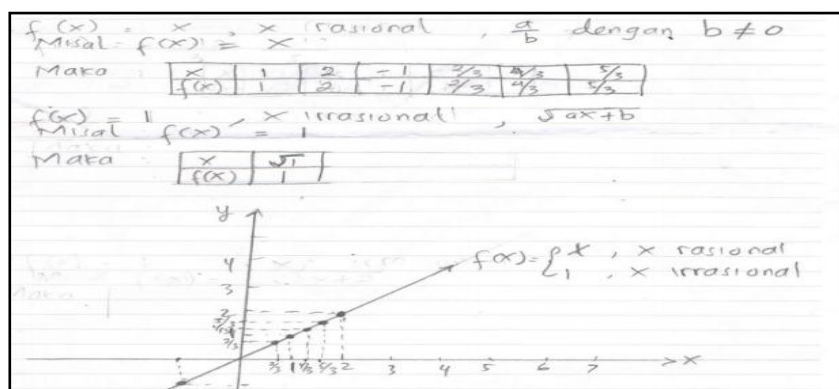 f(x) = x , x rasional , a/b dengan b ≠ 0
Misal f(x) = x
Maka
x 1 2 -1 2/3 4/3 5/3
f(x) 1 2 -1 2/3 4/3 5/3
f(x) = 1 , x irrasional , √ax+b
Misal f(x) = 1
Maka
x √1
f(x) 1
y
4
3
f(x) = { x , x rasional
1 , x irrasional
2
5/3
4/3
1
2/3
2/3 1 4/3 5/3 2 3 4 5 6 7 x